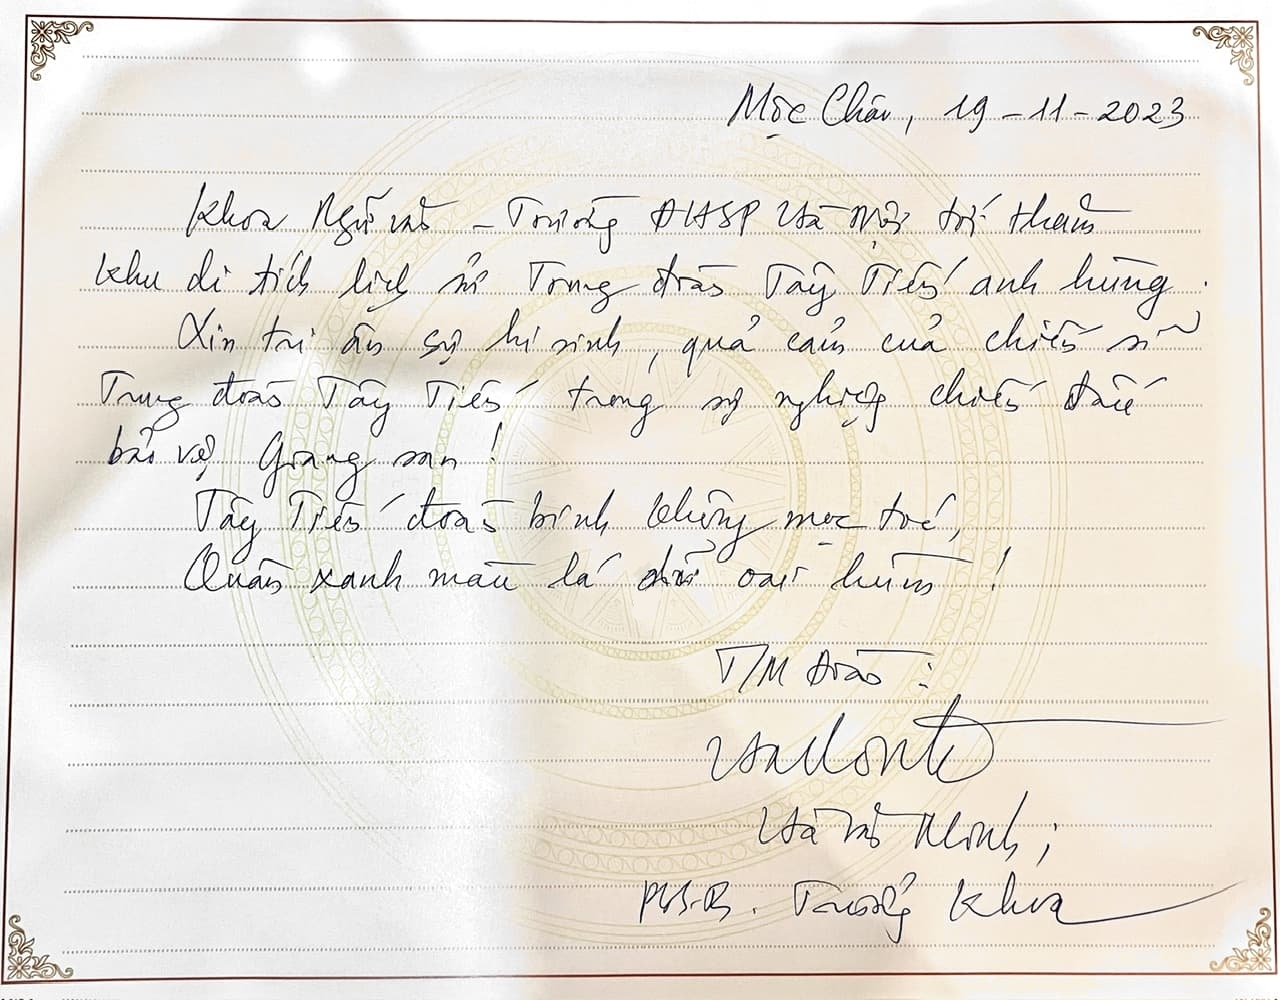 Mộc Châu, 19-11-2023
Khoa Ngữ văn - Trường ĐHSP Hà Nội tới thăm
khu di tích lịch sử Trung đoàn Tây Tiến anh hùng.
Xin tri ân sự hi sinh, quả cảm của chiến sĩ
Trung đoàn Tây Tiến trong sự nghiệp chiến đấu
bảo vệ Giang san!
Tây Tiến đoàn binh không mọc tóc,
Quân xanh màu lá dữ oai hùm!
T/M Đoàn:
Hà Văn Minh;
PGS.TS. Trưởng Khoa